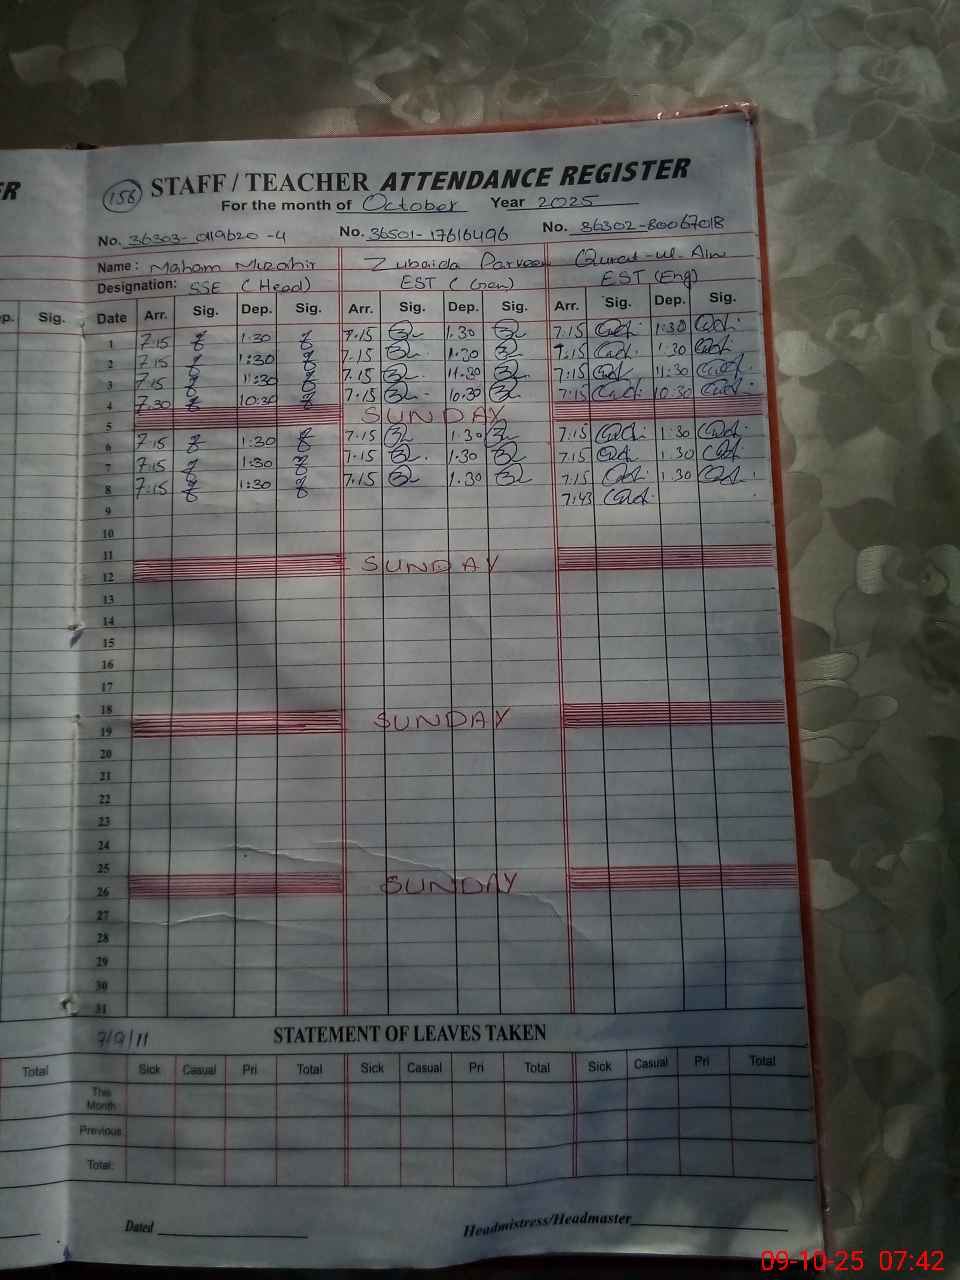 ER
(156) STAFF / TEACHER ATTENDANCE REGISTER
For the month of October Year 2025
No. 36303-0119620-4 No. 36501-17616496 No. 36302-80067018
Name: Maham Muzahir Zubaida Parveen Qurat-ul-Ain
Designation: SSE (Head) EST (Gen) EST (Eng)
ep. Sig. Date Arr. Sig. Dep. Sig. Arr. Sig. Dep. Sig. Arr. Sig. Dep. Sig.
1 7:15 1:30 7.15 1.30 7:15 1:30
2 7:15 1:30 7.15 1.30 7:15 1:30
3 7:15 11:30 7.15 11.30 7:15 11:30
4 7:30 10:30 7.15 10.30 7:15 10:30
5 SUNDAY
6 7:15 1:30 7.15 1.30 7:15 1:30
7 7:15 1:30 7.15 1.30 7:15 1:30
8 7:15 1:30 7.15 1.30 7:15 1:30
9 7:43
10
11
12 SUNDAY
13
14
15
16
17
18
19 SUNDAY
20
21
22
23
24
25
26 SUNDAY
27
28
29
30
31
7/9/11 STATEMENT OF LEAVES TAKEN
Total Sick Casual Pri Total Sick Casual Pri Total Sick Casual Pri Total
This Month
Previous
Total:
Dated Headmistress/Headmaster
09-10-25 07:42